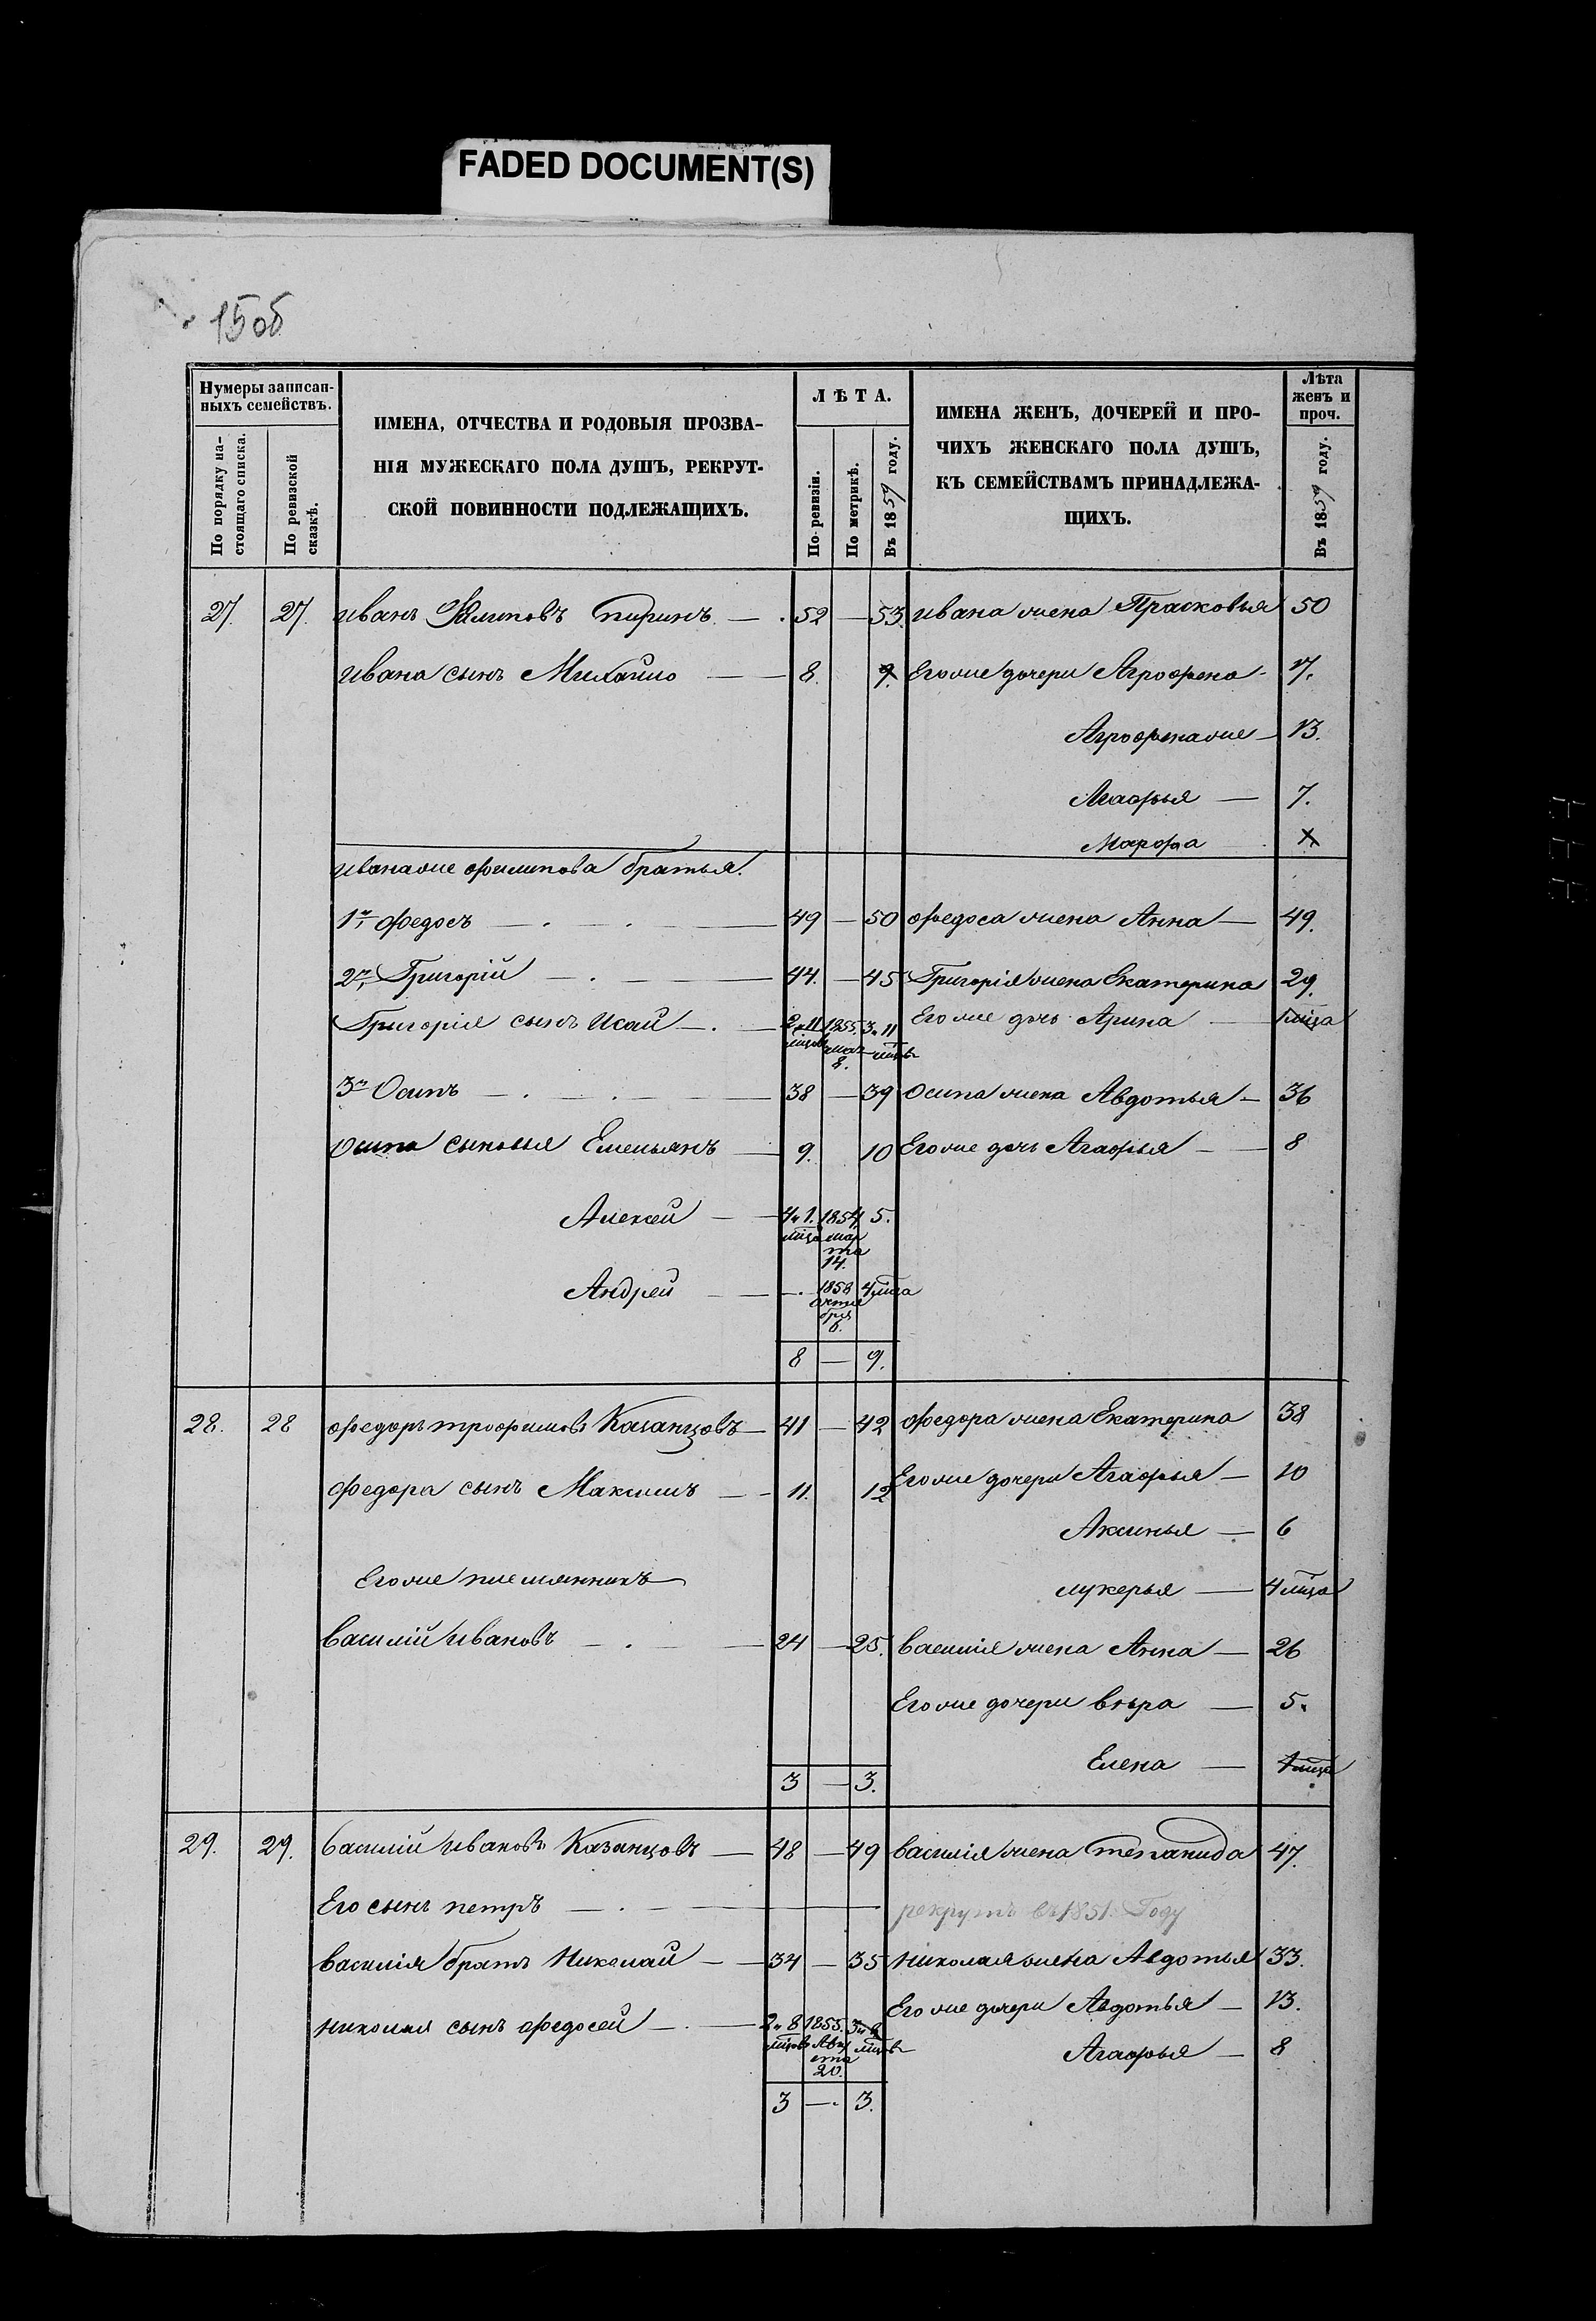 FADED DOCUMENT(S)
15 об
Нумеры записан-
ныхъ семействъ.
По порядку на-
стоящаго списка.
По ревизской
сказкѣ.
ИМЕНА, ОТЧЕСТВА И РОДОВЫЯ ПРОЗВА-
НІЯ МУЖЕСКАГО ПОЛА ДУШЪ, РЕКРУТ-
СКОЙ ПОВИННОСТИ ПОДЛЕЖАЩИХЪ.
ЛѢТА.
По ревизіи.
По метрикѣ.
Въ 1859 году.
ИМЕНА ЖЕНЪ, ДОЧЕРЕЙ И ПРО-
ЧИХЪ ЖЕНСКАГО ПОЛА ДУШЪ,
КЪ СЕМЕЙСТВАМЪ ПРИНАДЛЕЖА-
ЩИХЪ.
Лѣта
женъ и
проч.
Въ 1859 году.
27. 27. иванъ Филиповъ — 52 — 53. ивана жена Прасковья 50
ивана сынъ Михайло — 8. 9. Его же дочери Агрофена
Агрофена же — 13.
Агафья — 7.
Марфа
ивана же филипова братья.
1й федосъ — 49 — 50 федоса жена Анна — 49.
2й Григорій — 44. — 45 Григорія жена Екатерина 29.
Григорія сынъ Исай — 2 11 мцов 1855. 8. 3 11 мцовъ Его же дочь Арина —
3й Осипъ — 38 — 39 осипа жена Авдотья — 36
осипа сыновья Емельянъ — 9. 10 Его же дочь Агафья — 8
Алексей — 4 1. мца 1854 мар
та
14. 5.
Андрей — 1858 октя
бря
6. 4 мца
8 — 9.
28. 28 федоръ трофимовъ Казанцовъ — 41 — 42 федора жена Екатерина 38
федора сынъ Максимъ — 11. 12 Его же дочери Агафья — 10
Аксинья — 6
Его же племянникъ
лукерья — 4 мца
василій ивановъ — 24 — 25. василія жена Анна — 26
Его же дочери вѣра — 5.
Елена —
3 — 3.
29. 29. василій ивановъ Казанцовъ — 48 — 49 василія жена степанида 47.
Его сынъ петръ — рекрутъ въ 1851. Году
василія братъ Николай — 34 — 35 николая жена Авдотья 33.
Его же дочери Авдотья — 13.
николая сынъ федосей — 2 8 мцовъ 1855. Авгу
ста
20. мцовъ
Агафья — 8
3 — 3.